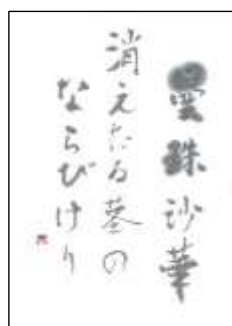 曼珠沙華
消えたる墓の
ならびけり